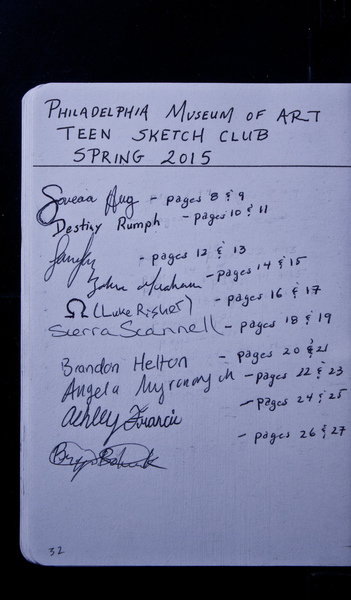 PHILADELPHIA MUSEUM OF ART
TEEN SKETCH CLUB
SPRING 2015
- pages 8 & 9
Destiny Rumph - pages 10 & 11
- pages 12 & 13
- pages 14 & 15
Ω (Luke Risher) - pages 16 & 17
Sierra Scannell - pages 18 & 19
Brandon Helton - pages 20 & 21
Angela - pages 22 & 23
Ashley - pages 24 & 25
- pages 26 & 27
32